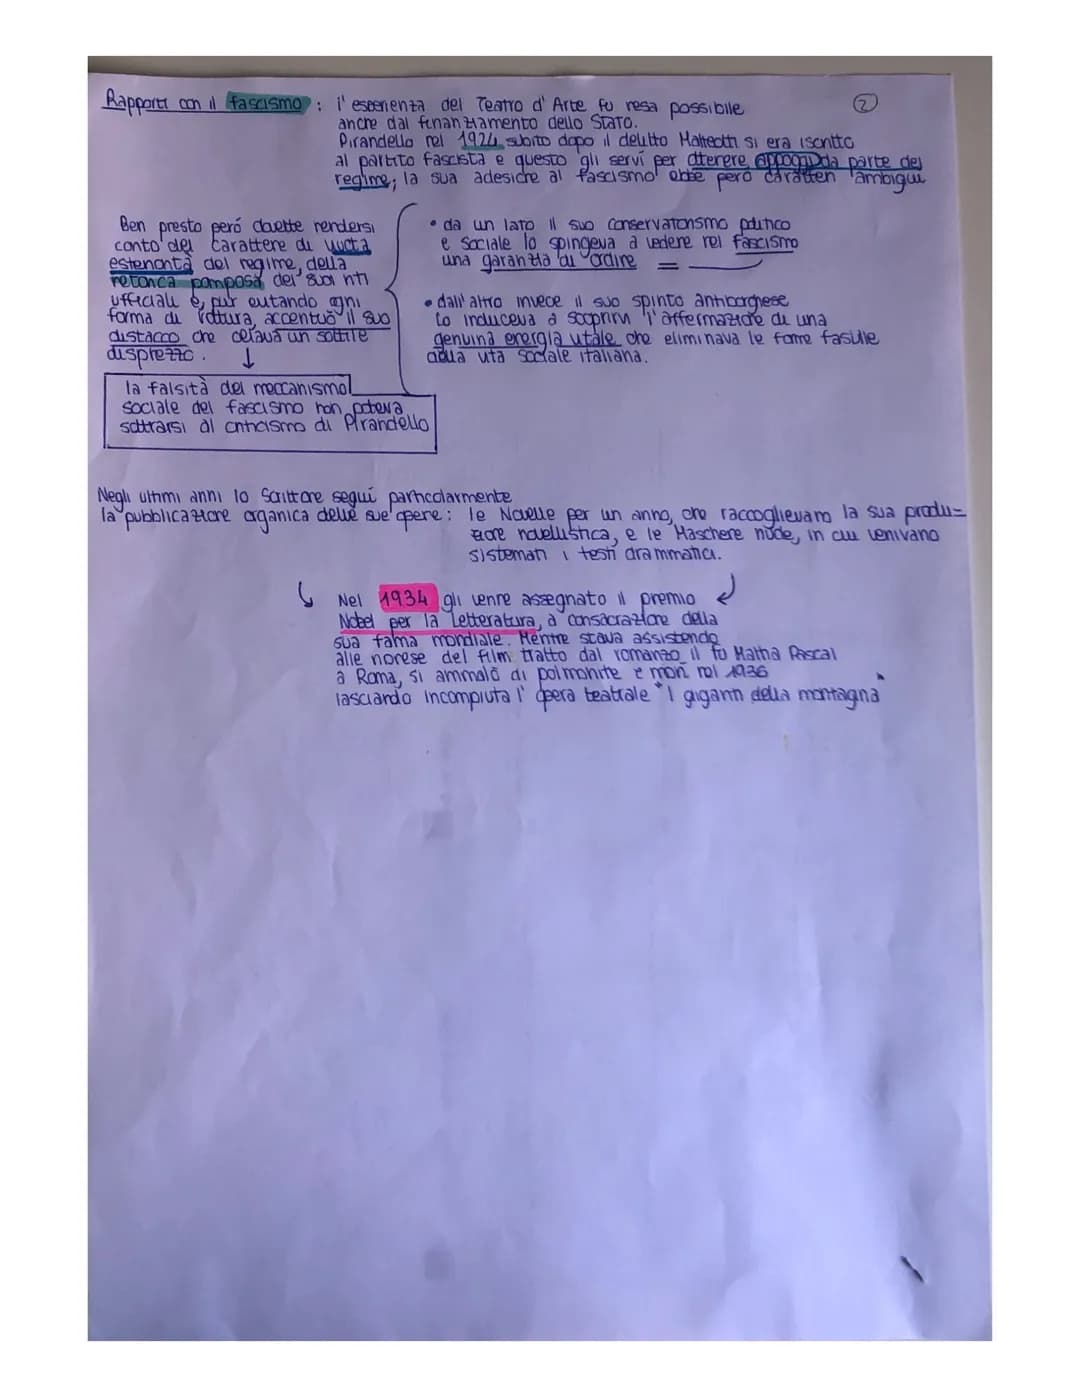 Rapporti con il fascismo : l'esperienza del Teatro d'Arte fu resa possibile
2
anche dal finanziamento dello Stato.
Pirandello nel 1924, subito dopo il delitto Matteotti si era iscritto
al partito fascista e questo gli servì per ottenere appoggi da parte del
regime; la sua adesione al fascismo ebbe però caratteri ambigui
• da un lato il suo conservatorismo politico
e sociale lo spingeva a vedere nel fascismo
una garanzia di ordine
• dall'altro invece il suo spirito antiborghese
lo induceva a scoprirvi l'affermazione di una
genuina energia vitale che eliminava le forme fasulle
della vita sociale italiana.
Ben presto però dovette rendersi
conto del carattere di vuota
esteriorità del regime, della
retorica pomposa dei suoi riti
ufficiali e, pur evitando ogni
forma di rottura, accentuò il suo
distacco che celava un sottile
disprezzo. ↓
la falsità del meccanismo
sociale del fascismo non poteva
sottrarsi al criticismo di Pirandello
Negli ultimi anni lo scrittore seguì particolarmente
la pubblicazione organica delle sue opere: le Novelle per un anno, che raccoglievano la sua produ=
zione novellistica, e le Maschere nude, in cui venivano
sistemati i testi drammatici.
Nel 1934 gli venne assegnato il premio
Nobel per la Letteratura, a consacrazione della
sua fama mondiale. Mentre stava assistendo
alle riprese del film tratto dal romanzo il fu Mattia Pascal
a Roma, si ammalò di polmonite e morì nel 1936
lasciando incompiuta l'opera teatrale "I giganti della montagna"